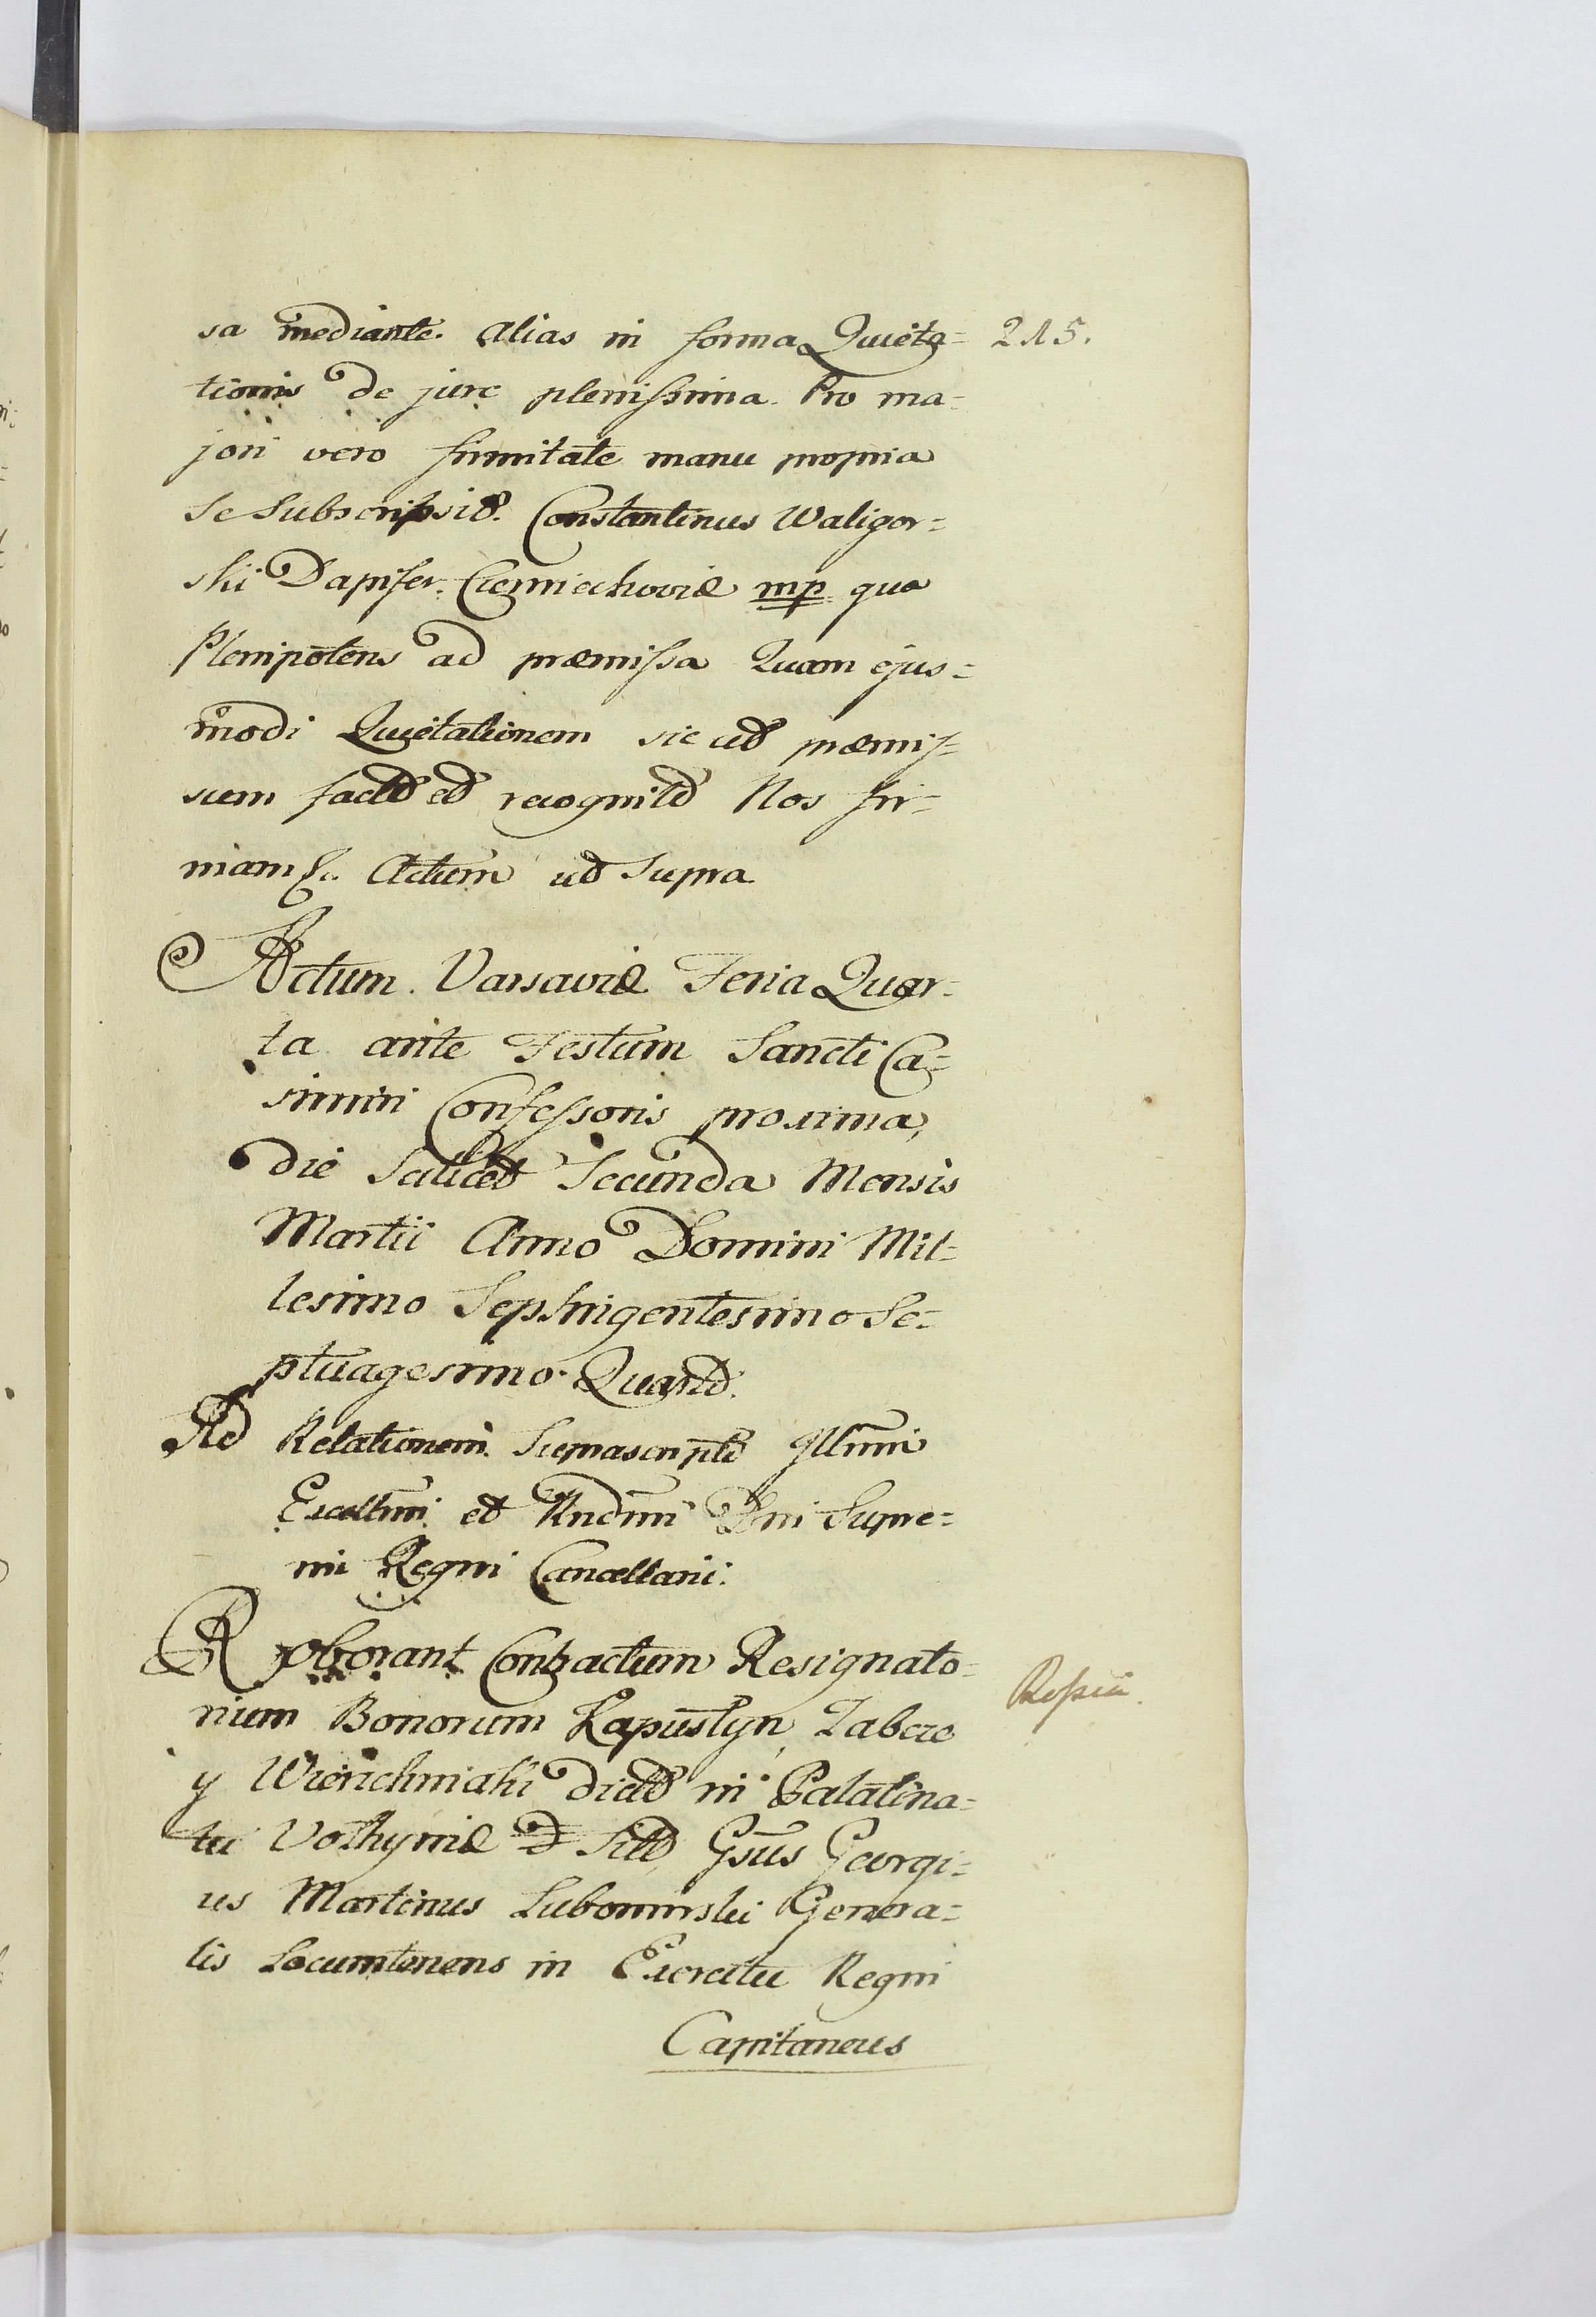 sa mediante. Alias in forma Quieta= 215.
tionis de jure plenissima. Pro ma=
jori vero firmitate manu propria
se subscripsit. Constantinus Waligor=
ski Dapifer. Czerniechoviæ mp qua
Plenipotens ad præmissa Quam ejus=
modi Quietationem sic ut præmis=
sum fact et recognit Nos fir=
mam &c. Actum ut supra
Actum. Varsaviæ Feria Quar=
ta ante Festum Sancti Ca=
simiri Confessoris proxima,
die scilicet Secunda Mensis
Martii Anno Domini Mil=
lesimo Septingentesimo Se=
ptuagesimo Quart.
Ad Relationem Suprascripti Illmi
Excellmi et Rndmi Dni Supre=
mi Regni Cancellarii.
Roborant Contractum Resignato=
rium Bonorum Kapustyn, Zabcze
y Wierichniaki dict in Palatina=
tu Volhyniæ sit Gsus Georgi=
us Martinus Lubomirski Genera=
lis Locumtenens in Exercitu Regni
Capitaneus